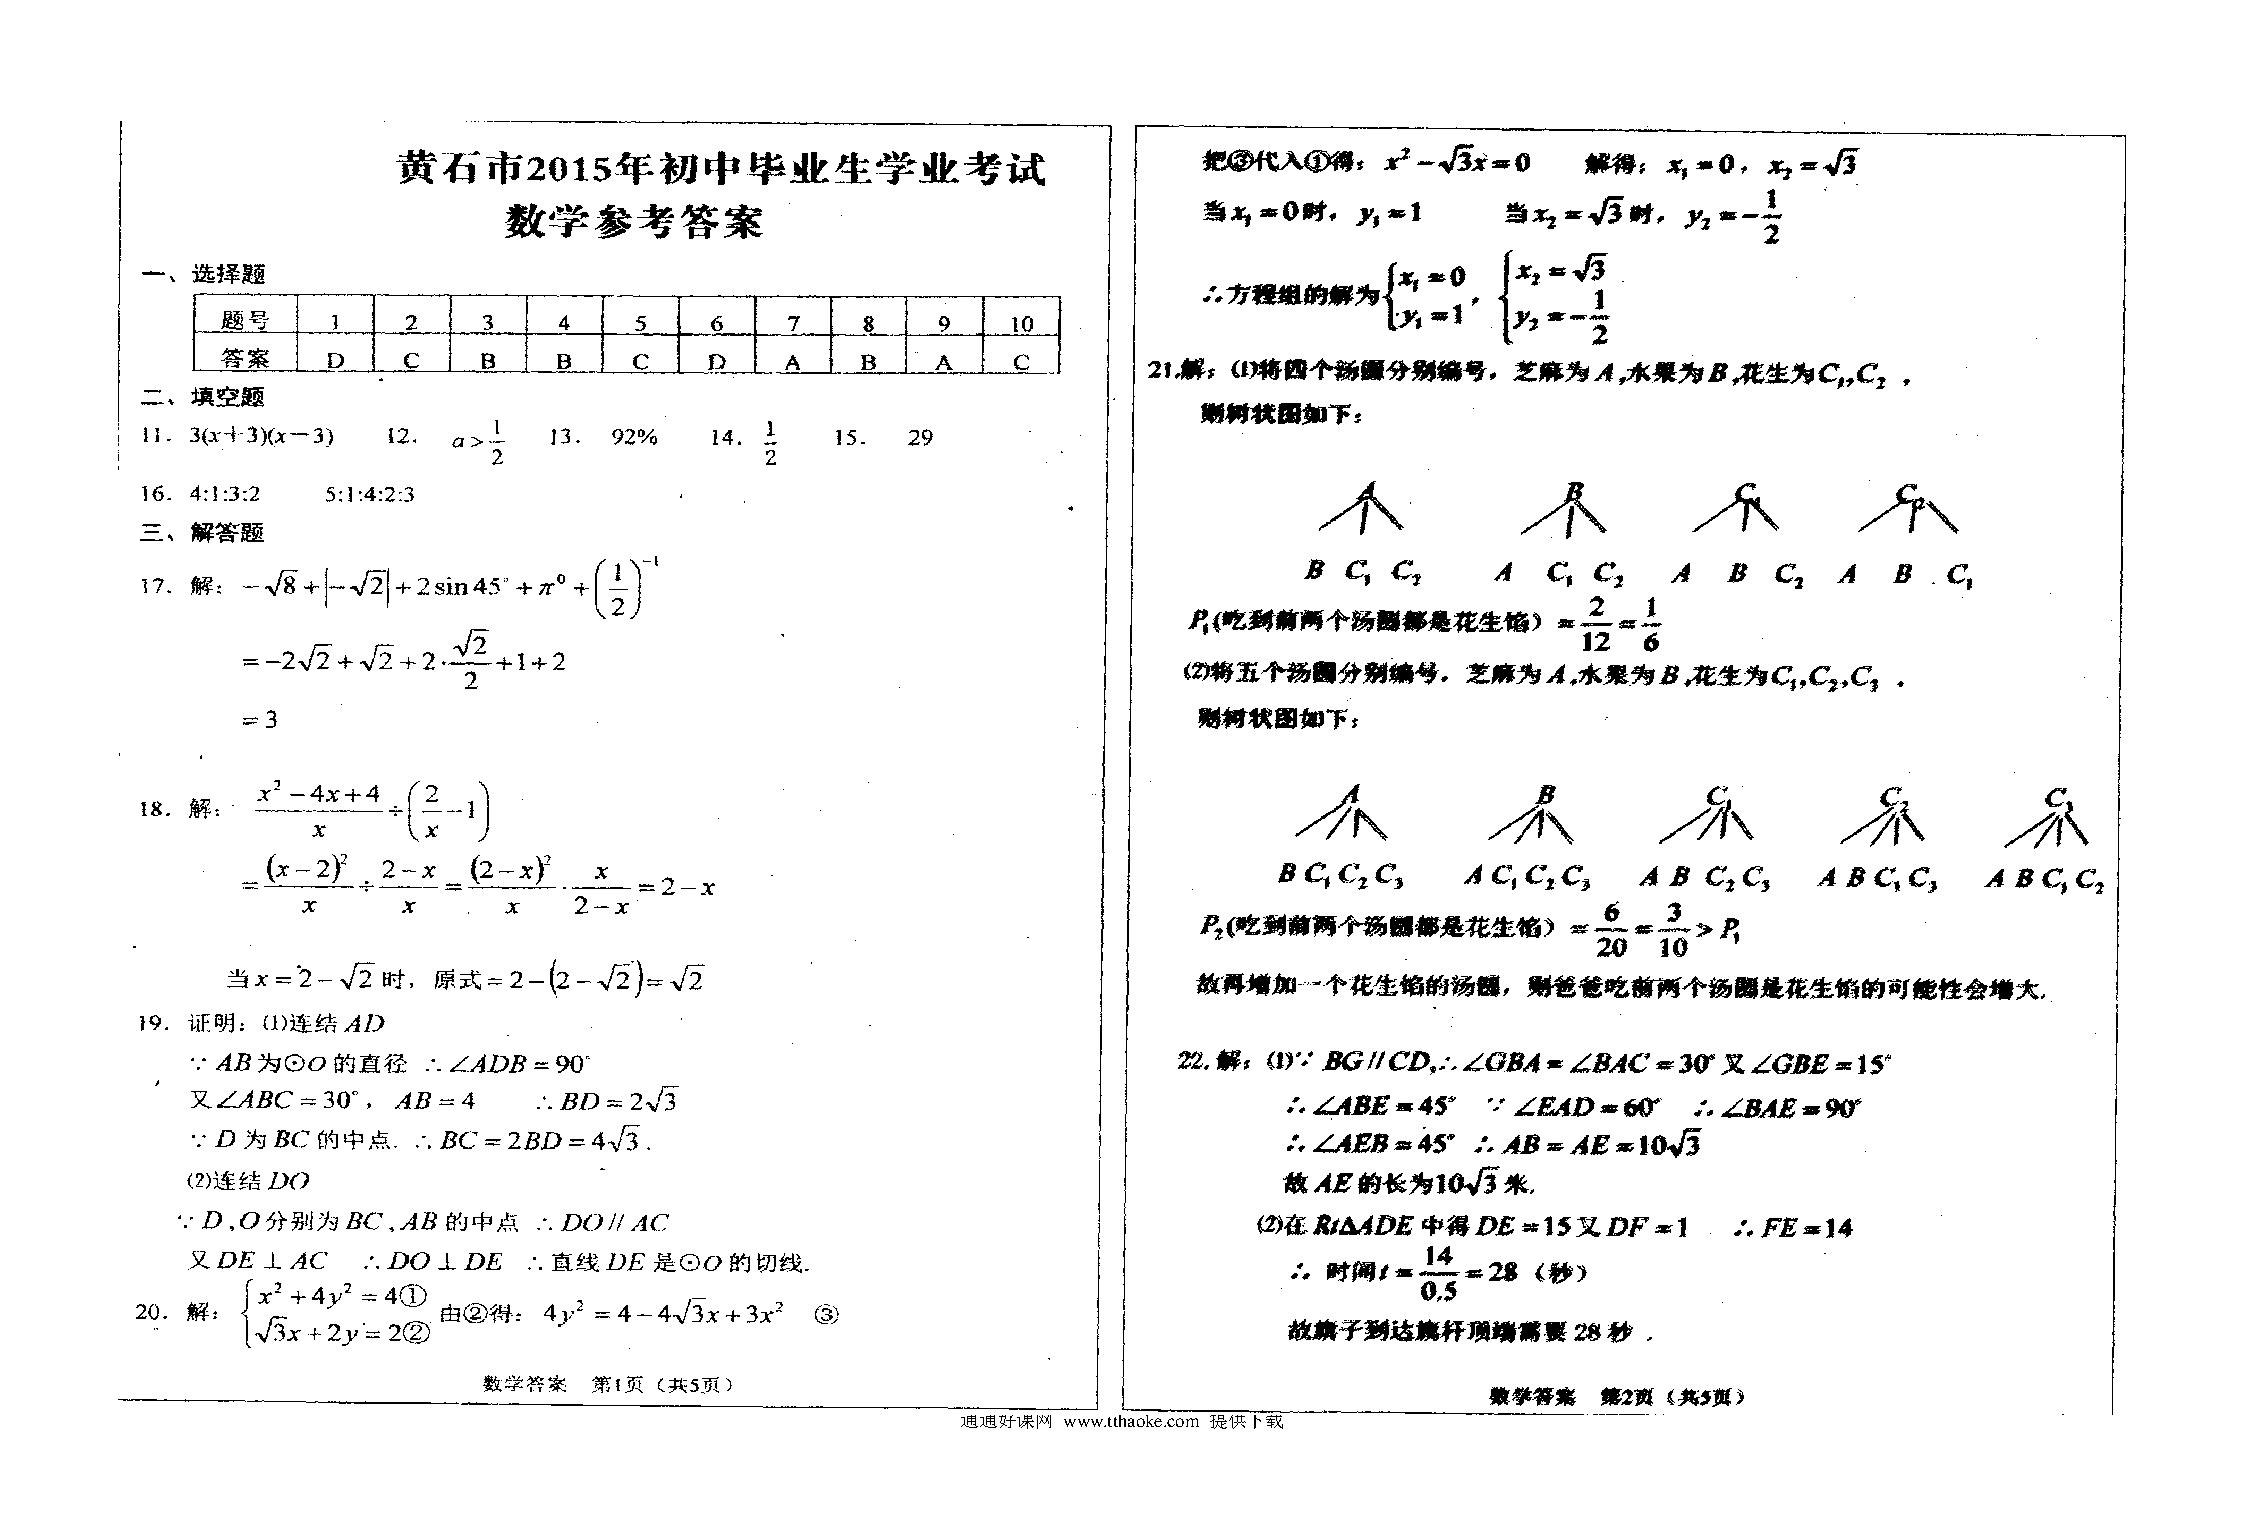 黄石市2015年初中毕业生学业考试
数学参考答案
一、选择题
题号 1 2 3 4 5 6 7 8 9 10
答案 D C B B C D A B A C
二、填空题
11. 3(x+3)(x－3) 12. a>1/2 13. 92% 14. 1/2 15. 29
16. 4:1:3:2 5:1:4:2:3
三、解答题
17. 解: －√8+|－√2|+2sin45°+π⁰+(1/2)⁻¹
=－2√2+√2+2·√2/2+1+2
=3
18. 解: (x²－4x+4)/x÷(2/x－1)
=(x－2)²/x÷(2－x)/x=(2－x)²/x·x/(2－x)=2－x
当x=2－√2时，原式=2－(2－√2)=√2
19. 证明: (1)连结AD
∵AB为⊙O的直径 ∴∠ADB=90°
又∠ABC=30°，AB=4 ∴BD=2√3
∵D为BC的中点. ∴BC=2BD=4√3.
(2)连结DO
∵D,O分别为BC,AB的中点 ∴DO//AC
又DE⊥AC ∴DO⊥DE ∴直线DE是⊙O的切线.
20. 解: {x²+4y²=4① √3x+2y=2② 由②得: 4y²=4－4√3x+3x² ③
数学答案 第1页（共5页）
把③代入①得: x²－√3x=0 解得: x₁=0，x₂=√3
当x₁=0时，y₁=1 当x₂=√3时，y₂=－1/2
∴方程组的解为{x₁=0 y₁=1，{x₂=√3 y₂=－1/2
21.解: (1)将四个汤圆分别编号，芝麻为A,水果为B,花生为C₁,C₂，
则树状图如下:
A B C₁ C₂
B C₁ C₂ A C₁ C₂ A B C₂ A B C₁
P₁(吃到前两个汤圆都是花生馅）=2/12=1/6
(2)将五个汤圆分别编号，芝麻为A,水果为B,花生为C₁,C₂,C₃，
则树状图如下:
A B C₁ C₂ C₃
B C₁ C₂ C₃ A C₁ C₂ C₃ A B C₂ C₃ A B C₁ C₃ A B C₁ C₂
P₂(吃到前两个汤圆都是花生馅）=6/20=3/10>P₁
故再增加一个花生馅的汤圆，则爸爸吃前两个汤圆是花生馅的可能性会增大.
22.解: (1)∵BG//CD,∴∠GBA=∠BAC=30°又∠GBE=15°
∴∠ABE=45° ∵∠EAD=60° ∴∠BAE=90°
∴∠AEB=45° ∴AB=AE=10√3
故AE的长为10√3米.
(2)在Rt△ADE中得DE=15又DF=1 ∴FE=14
∴时间t=14/0.5=28（秒）
故旗子到达旗杆顶端需要28秒．
数学答案 第2页（共5页）
通通好课网 www.tthaoke.com 提供下载